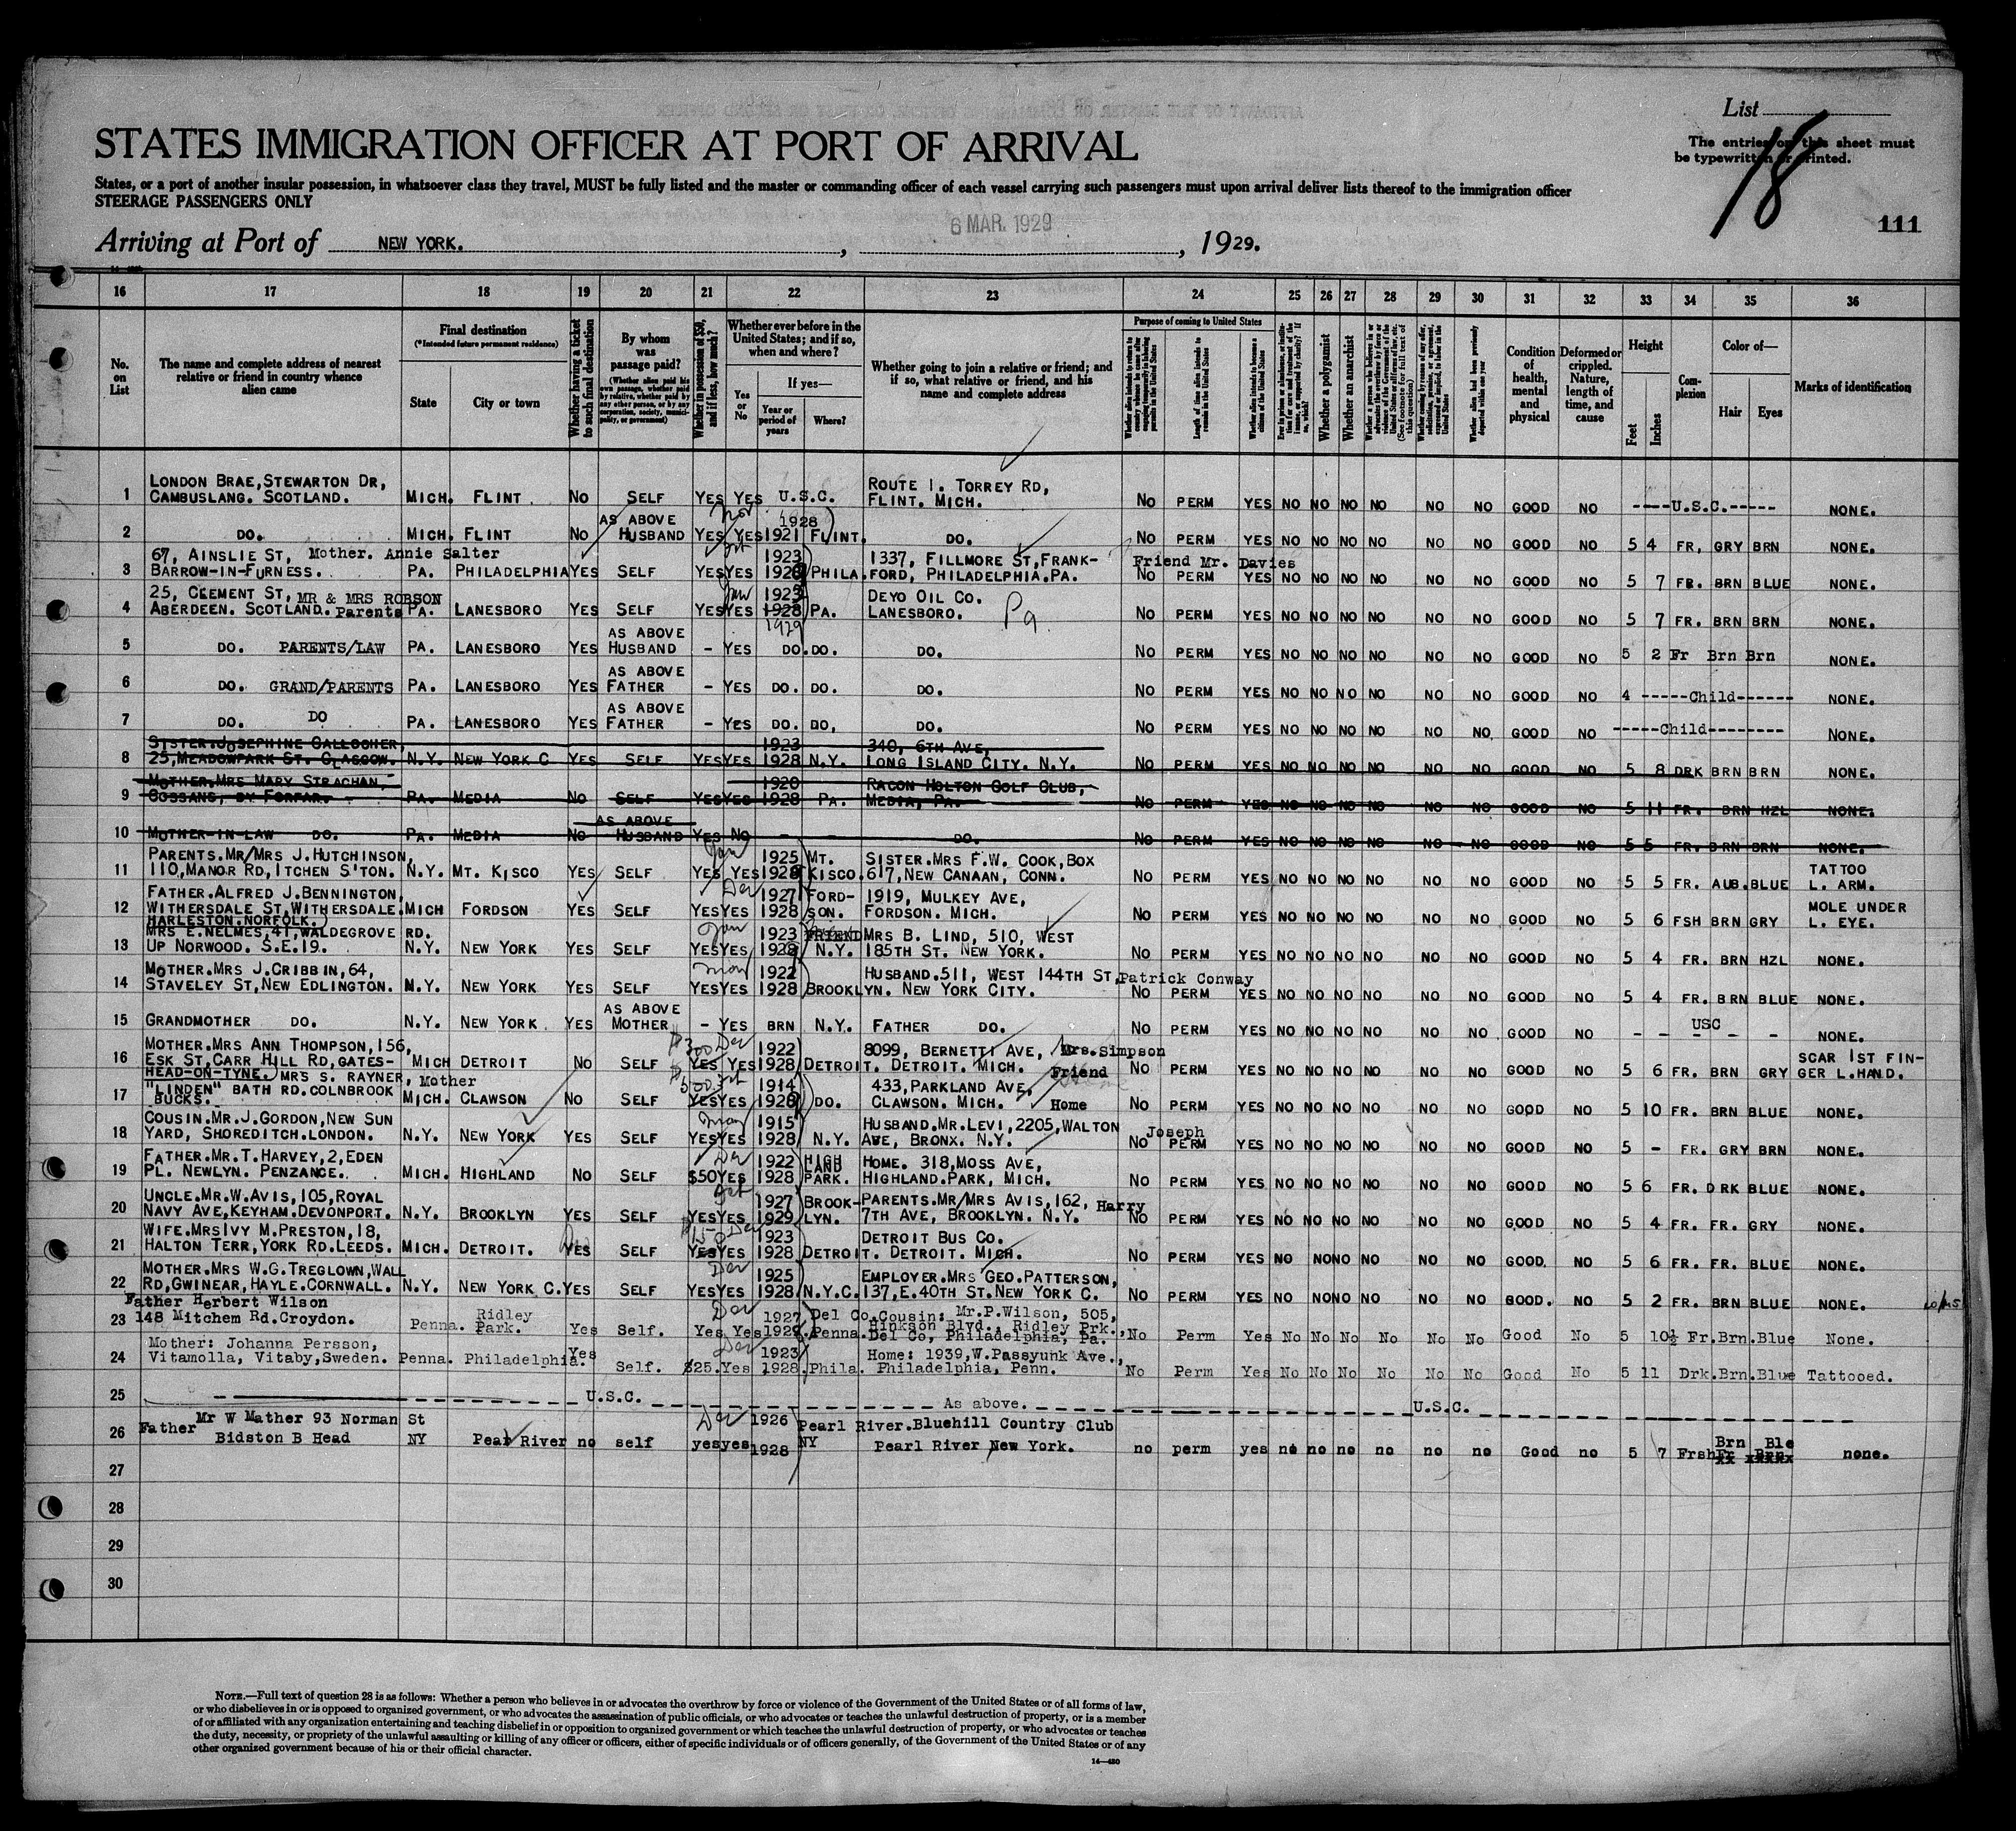 List
The entries on this sheet must
be typewritten or printed.
18
STATES IMMIGRATION OFFICER AT PORT OF ARRIVAL
States, or a port of another insular possession, in whatsoever class they travel, MUST be fully listed and the master or commanding officer of each vessel carrying such passengers must upon arrival deliver lists thereof to the immigration officer
STEERAGE PASSENGERS ONLY
6 MAR. 1929
111
Arriving at Port of NEW YORK. , , 1929.
16 17 18 19 20 21 22 23 24 25 26 27 28 29 30 31 32 33 34 35 36
No. on List
The name and complete address of nearest relative or friend in country whence alien came
Final destination
(*Intended future permanent residence)
State
City or town
Whether having a ticket to such final destination
By whom was passage paid?
(Whether alien paid his own passage, whether paid by relative, whether paid by any other person, or by any corporation, society, municipality, or government)
Whether in possession of $50, and if less, how much?
Whether ever before in the United States; and if so, when and where?
Yes or No
If yes—
Year or period of years
Where?
Whether going to join a relative or friend; and if so, what relative or friend, and his name and complete address
Purpose of coming to United States
Length of time alien intends to remain in the United States
Whether alien intends to become a citizen of the United States
Whether a polygamist
Whether an anarchist
Condition of health, mental and physical
Deformed or crippled. Nature, length of time, and cause
Height
Feet
Inches
Complexion
Color of—
Hair
Eyes
Marks of identification
LONDON BRAE, STEWARTON DR, ROUTE 1. TORREY RD,
1 CAMBUSLANG. SCOTLAND. MICH. FLINT. NO SELF YES YES U.S.C. FLINT. MICH. NO PERM YES NO NO NO NO NO NO GOOD NO ----U.S.C.----- NONE.
AS ABOVE Nov 1928
2 DO. MICH. FLINT NO HUSBAND YES YES 1921 FLINT. DO. NO PERM YES NO NO NO NO NO NO GOOD NO 5 4 FR. GRY BRN NONE.
67, AINSLIE ST, Mother. Annie Salter 1923 1337, FILLMORE ST, FRANK- Friend Mr. Davies
3 BARROW-IN-FURNESS. PA. PHILADELPHIA YES SELF YES YES 1928 PHILA. FORD, PHILADELPHIA. PA. NO PERM YES NO NO NO NO NO NO GOOD NO 5 7 FR. BRN BLUE NONE.
25, CLEMENT ST, MR & MRS ROBSON Jan 1923 DEYO OIL CO.
4 ABERDEEN. SCOTLAND. Parents PA. LANESBORO YES SELF YES YES 1928 PA. LANESBORO. Pa. NO PERM YES NO NO NO NO NO NO GOOD NO 5 7 FR. BRN BRN NONE.
1929
AS ABOVE
5 DO. PARENTS/LAW PA. LANESBORO YES HUSBAND - YES DO. DO. DO. NO PERM YES NO NO NO NO NO NO GOOD NO 5 2 Fr Brn Brn NONE.
AS ABOVE
6 DO. GRAND/PARENTS PA. LANESBORO YES FATHER - YES DO. DO. DO. NO PERM YES NO NO NO NO NO NO GOOD NO 4 -----Child------ NONE.
AS ABOVE
7 DO. DO PA. LANESBORO YES FATHER - YES DO. DO. DO. NO PERM YES NO NO NO NO NO NO GOOD NO -----Child-------- NONE.
SISTER. JOSEPHINE GALLOGHER, 1923 340, 6TH AVE,
8 25, MEADOWPARK ST. GLASGOW. N.Y. NEW YORK C YES SELF YES YES 1928 N.Y. LONG ISLAND CITY. N.Y. NO PERM YES NO NO NO NO NO NO GOOD NO 5 8 DRK BRN BRN NONE.
MOTHER, MRS MARY STRACHAN, 1920 RACON HOLTON GOLF CLUB,
9 COSSANS, BY FORFAR. PA. MEDIA NO SELF YES YES 1928 PA. MEDIA, PA. NO PERM YES NO NO NO NO NO NO GOOD NO 5 11 FR. BRN HZL NONE.
AS ABOVE
10 MOTHER-IN-LAW DO. PA. MEDIA NO HUSBAND YES NO - - DO. NO PERM YES NO NO NO NO NO NO GOOD NO 5 5 FR. BRN BRN NONE.
PARENTS. MR/MRS J. HUTCHINSON, Jan 1925 MT. SISTER. MRS F.W. COOK, BOX TATTOO
11 110, MANOR RD, ITCHEN S'TON. N.Y. MT. KISCO YES SELF YES YES 1928 KISCO. 617, NEW CANAAN, CONN. NO PERM YES NO NO NO NO NO NO GOOD NO 5 5 FR. AUB. BLUE L. ARM.
FATHER. ALFRED J. BENNINGTON, Dec 1927 FORD- 1919, MULKEY AVE, MOLE UNDER
12 WITHERSDALE ST, WITHERSDALE. MICH FORDSON YES SELF YES YES 1928 SON. FORDSON. MICH. NO PERM YES NO NO NO NO NO NO GOOD NO 5 6 FSH BRN GRY L. EYE.
HARLESTON. NORFOLK.)
MRS E. NELMES, 41, WALDEGROVE RD. Jan 1923 FRIEND MRS B. LIND, 510, WEST
13 UP NORWOOD. S.E.19. N.Y. NEW YORK YES SELF YES YES 1928 N.Y. 185TH ST. NEW YORK. NO PERM YES NO NO NO NO NO NO GOOD NO 5 4 FR. BRN HZL NONE.
MOTHER. MRS J. CRIBBIN, 64, May 1922 HUSBAND. 511, WEST 144TH ST, Patrick Conway
14 STAVELEY ST, NEW EDLINGTON. N.Y. NEW YORK YES SELF YES YES 1928 BROOKLYN. NEW YORK CITY. NO PERM YES NO NO NO NO NO NO GOOD NO 5 4 FR. BRN BLUE NONE.
AS ABOVE USC
15 GRANDMOTHER DO. N.Y. NEW YORK. YES MOTHER - YES BRN N.Y. FATHER DO. NO PERM YES NO NO NO NO NO NO GOOD NO - - - - - NONE.
MOTHER. MRS ANN THOMPSON, 156, $300 Dec 1922 8099, BERNETTI AVE, Mrs. Simpson SCAR 1ST FIN-
16 ESK ST, CARR HILL RD, GATES- MICH DETROIT NO SELF YES YES 1928 DETROIT. DETROIT. MICH. Friend NO PERM YES NO NO NO NO NO NO GOOD NO 5 6 FR. BRN GRY GER L. HAND.
HEAD-ON-TYNE.) MRS S. RAYNER, Mother $500 1914 433, PARKLAND AVE.
17 "LINDEN" BATH RD. COLNBROOK MICH. CLAWSON NO SELF YES YES 1928 DO. CLAWSON. MICH. Home NO PERM YES NO NO NO NO NO NO GOOD NO 5 10 FR. BRN BLUE NONE.
BUCKS.
COUSIN. MR. J. GORDON, NEW SUN May 1915 HUSBAND. MR. LEVI, 2205, WALTON Joseph
18 YARD, SHOREDITCH. LONDON. N.Y. NEW YORK YES SELF YES YES 1928 N.Y. AVE, BRONX. N.Y. NO PERM YES NO NO NO NO NO NO GOOD NO 5 - FR. GRY BRN NONE.
FATHER. MR. T. HARVEY, 2, EDEN Dec 1922 HIGH LAND HOME. 318, MOSS AVE,
19 PL. NEWLYN. PENZANCE. MICH. HIGHLAND NO SELF $50 YES 1928 PARK. HIGHLAND. PARK, MICH. NO PERM YES NO NO NO NO NO NO GOOD NO 5 6 FR. DRK BLUE NONE.
UNCLE. MR. W. AVIS, 105, ROYAL 1927 BROOK- PARENTS. MR/MRS AVIS, 162, Harry
20 NAVY AVE, KEYHAM. DEVONPORT. N.Y. BROOKLYN YES SELF YES YES 1929 LYN. 7TH AVE, BROOKLYN. N.Y. NO PERM YES NO NO NO NO NO NO GOOD NO 5 4 FR. FR. GRY NONE.
WIFE. MRS IVY M. PRESTON, 18, $150 Dec 1923 DETROIT BUS CO.
21 HALTON TERR, YORK RD. LEEDS. MICH. DETROIT. YES SELF YES YES 1928 DETROIT. DETROIT. MICH. NO PERM YES NO NO NO NO NO NO GOOD. NO 5 6 FR. FR. BLUE NONE.
MOTHER. MRS W.G. TREGLOWN, WALL Dec 1925 EMPLOYER. MRS GEO. PATTERSON,
22 RD, GWINEAR, HAYLE. CORNWALL. N.Y. NEW YORK C. YES SELF YES YES 1928 N.Y.C. 137, E. 40TH ST. NEW YORK C. NO PERM YES NO NO NO NO NO NO GOOD. NO 5 2 FR. BRN BLUE NONE.
Father Herbert Wilson Ridley Dec 1927 Del Co. Cousin: Mr. P. Wilson, 505, Hinkson Blvd., Ridley Prk.,
23 148 Mitchem Rd. Croydon. Penna. Park. Yes Self. Yes Yes 1927 Penna. Del Co, Philadelphia, Pa. No Perm Yes No No No No No No Good No 5 10½ Fr. Brn. Blue None.
Mother: Johanna Persson, Yes Dec 1923 Home: 1939, W. Passyunk Ave.,
24 Vitamolla, Vitaby, Sweden. Penna. Philadelphia. Self. $25. Yes 1928. Phila. Philadelphia, Penn. No Perm Yes No No No No No No Good No 5 11 Drk. Brn. Blue Tattooed.
25 U.S.C. As above. U.S.C.
Father Mr W Mather 93 Norman St Dec 1926 Pearl River. Bluehill Country Club Brn Ble
26 Bidston B Head NY Pearl River no self yes yes 1928 NY Pearl River New York. no perm yes no no no no no no Good no 5 7 Frsh Fr Brn none.
xx xxxxx
27
28
29
30
NOTE.—Full text of question 28 is as follows: Whether a person who believes in or advocates the overthrow by force or violence of the Government of the United States or of all forms of law,
or who disbelieves in or is opposed to organized government, or who advocates the assassination of public officials, or who advocates or teaches the unlawful destruction of property, or is a member
of or affiliated with any organization entertaining and teaching disbelief in or opposition to organized government or which teaches the unlawful destruction of property, or who advocates or teaches
the duty, necessity, or propriety of the unlawful assaulting or killing of any officer or officers, either of specific individuals or of officers generally, of the Government of the United States or of any
other organized government because of his or their official character.
14—480